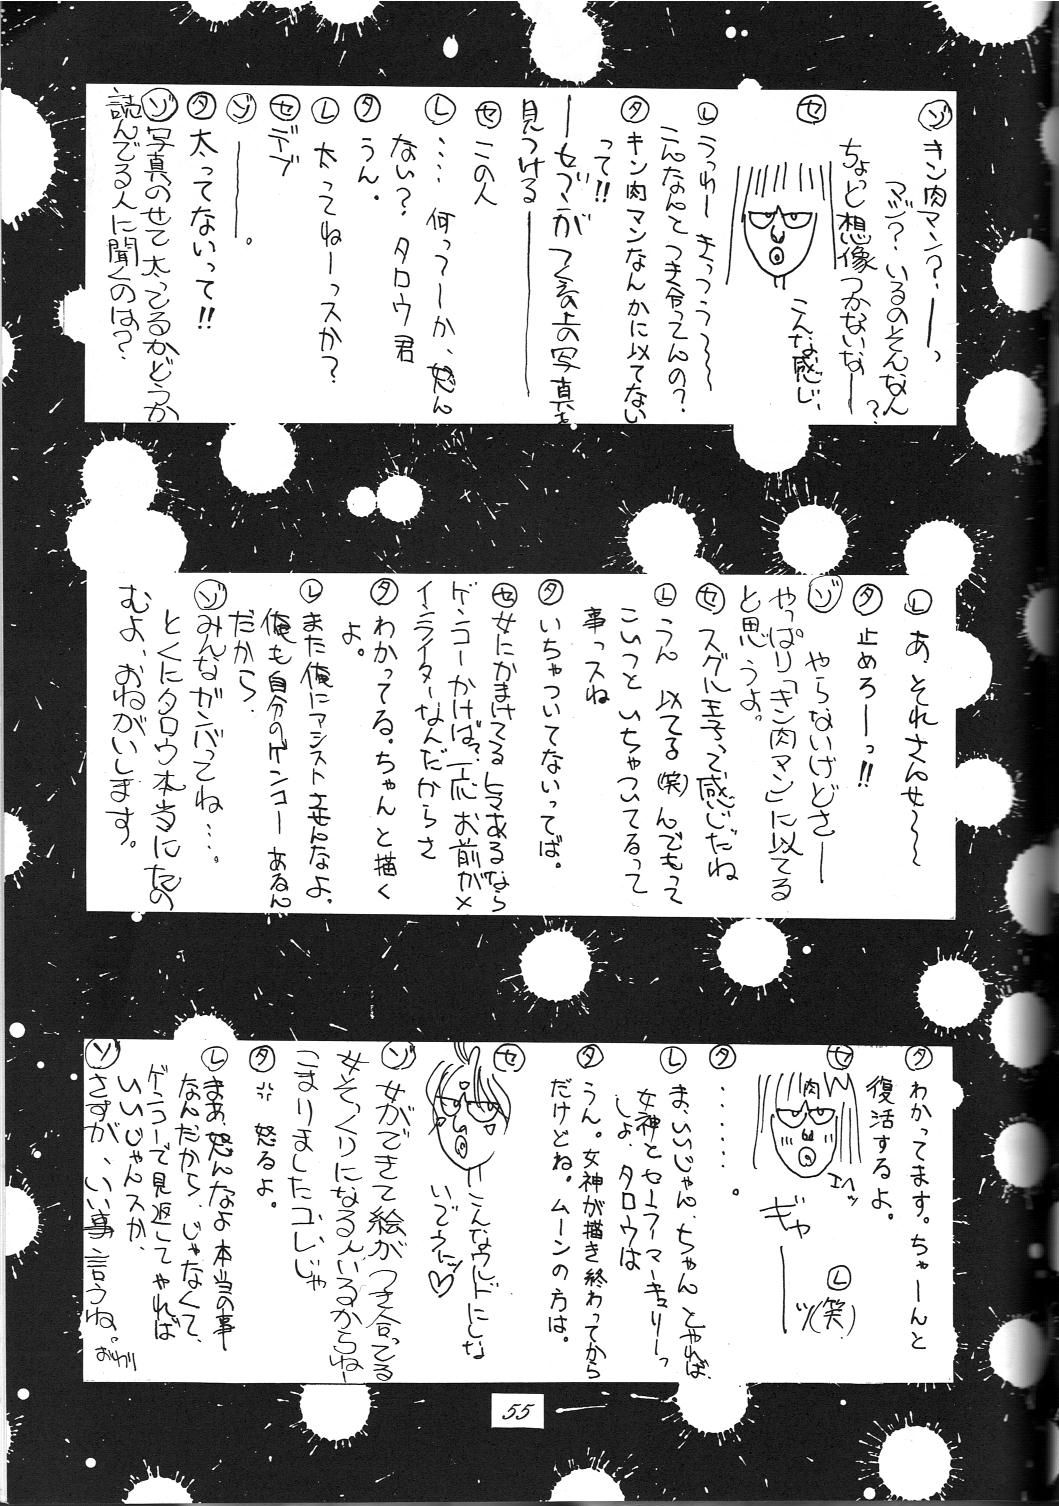 ゾ キン肉マン?――っ
マジ?いるのそんなん?
セ ちょっと想像つかないなー
こんな感じ、
レ うっわー きっつうー〜〜
こんなんと つき合ってんの?
タ キン肉マンなんかに似てない
って!!
見つける――
セ この人
レ …。何ってーか、怒ん
ない?タロウ君
タ うん。
レ 太ってねーっスか?
セ デブ
ゾ ――。
タ 太ってないって!!
ゾ 写真のせて太ってるかどうか
読んでる人に聞くのは?
レ あ、それさんせ〜〜
タ 止めろーっ!!
ゾ やらないけどさー
やっぱり「キン肉マン」に似てる
と思うよ。
セ スグル王子って感じだね
レ うん 似てる(笑)んでもって
こいつと いちゃついてるって
事っスね
タ いちゃついてないってば。
セ 女にかまけてるヒマあるなら
ゲンコーかけば?一応お前がメ
インライターなんだからさ
タ わかってる。ちゃんと描く
よ。
レ また俺にアシストさせんなよ。
俺も自分のゲンコーあるん
だから、
ゾ みんながんバってね…。
とくにタロウ本当にたの
むよ、おねがいします。
タ わかってます。ちゃーんと
復活するよ。
セ 肉
エヘッ
ギャ――ッ
レ (笑)
タ ・・・・・・。
レ ま、いいじゃん、ちゃんとやれば
女神とセーラーマーキュリーっ
しょ、タロウは
タ うん。女神が描き終わってから
だけどね。ムーンの方は。
セ こんなウルドにしな
いでネ♡
ゾ 女ができて絵がつき合ってる
女そっくりになる人いるからねー
こまりましたコレじゃ
タ 怒るよ。
レ まあ、怒んなよ本当の事
なんだから、じゃなくて、
ゲンコーで見返してやれば
いいじゃんスか、
ゾ さすが、いい事言うね。
おわり
55